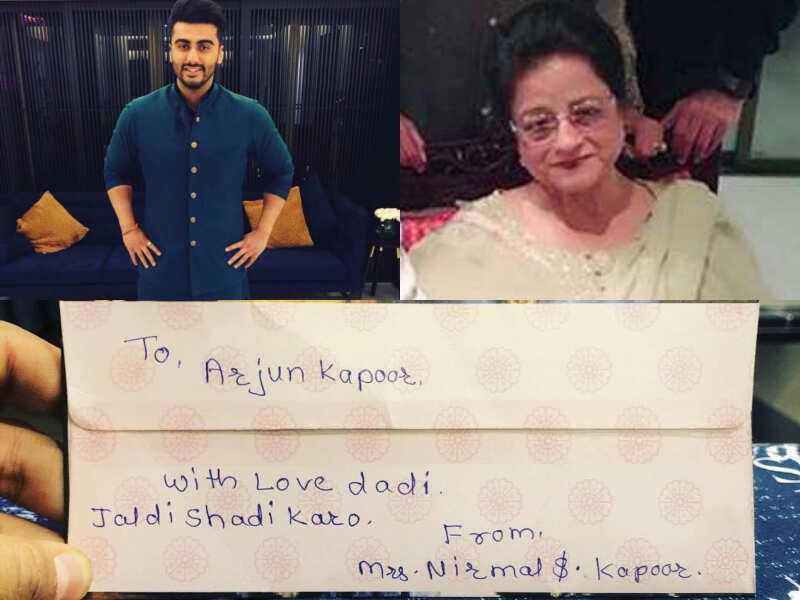 To,
Arjun Kapoor,
With Love dadi.
Jaldi Shadi Karo.
From,
Mrs. Nirmal S. Kapoor.